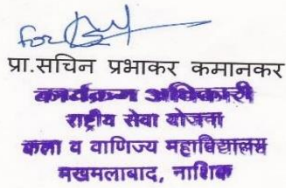 for
प्रा.सचिन प्रभाकर कमानकर
कार्यक्रम अधिकारी
राष्ट्रीय सेवा योजना
कला व वाणिज्य महाविद्यालय
मखमलाबाद, नाशिक